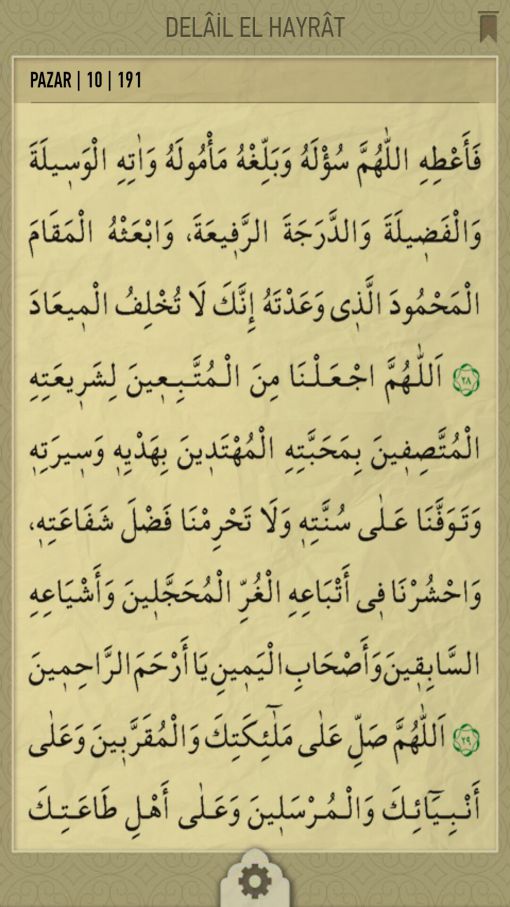 DELÂİL EL HAYRÂT
PAZAR | 10 | 191
فَأَعْطِهِ اللّٰهُمَّ سُؤْلَهُ وَبَلِّغْهُ مَأْمُولَهُ وَاٰتِهِ الْوَسِيلَةَ
وَالْفَضِيلَةَ وَالدَّرَجَةَ الرَّفِيعَةَ، وَابْعَثْهُ الْمَقَامَ
الْمَحْمُودَ الَّذِى وَعَدْتَهُ إِنَّكَ لَا تُخْلِفُ الْمِيعَادَ
٢٨ اَللّٰهُمَّ اجْعَلْنَا مِنَ الْمُتَّبِعِينَ لِشَرِيعَتِهِ
الْمُتَّصِفِينَ بِمَحَبَّتِهِ الْمُهْتَدِينَ بِهَدْيِهِ وَسِيرَتِهِ
وَتَوَفَّنَا عَلٰى سُنَّتِهِ وَلَا تَحْرِمْنَا فَضْلَ شَفَاعَتِهِ،
وَاحْشُرْنَا فِى أَتْبَاعِهِ الْغُرِّ الْمُحَجَّلِينَ وَأَشْيَاعِهِ
السَّابِقِينَ وَأَصْحَابِ الْيَمِينِ يَا أَرْحَمَ الرَّاحِمِينَ
٢٩ اَللّٰهُمَّ صَلِّ عَلٰى مَلٰٓئِكَتِكَ وَالْمُقَرَّبِينَ وَعَلٰى
أَنْبِيَٓائِكَ وَالْمُرْسَلِينَ وَعَلٰى أَهْلِ طَاعَتِكَ